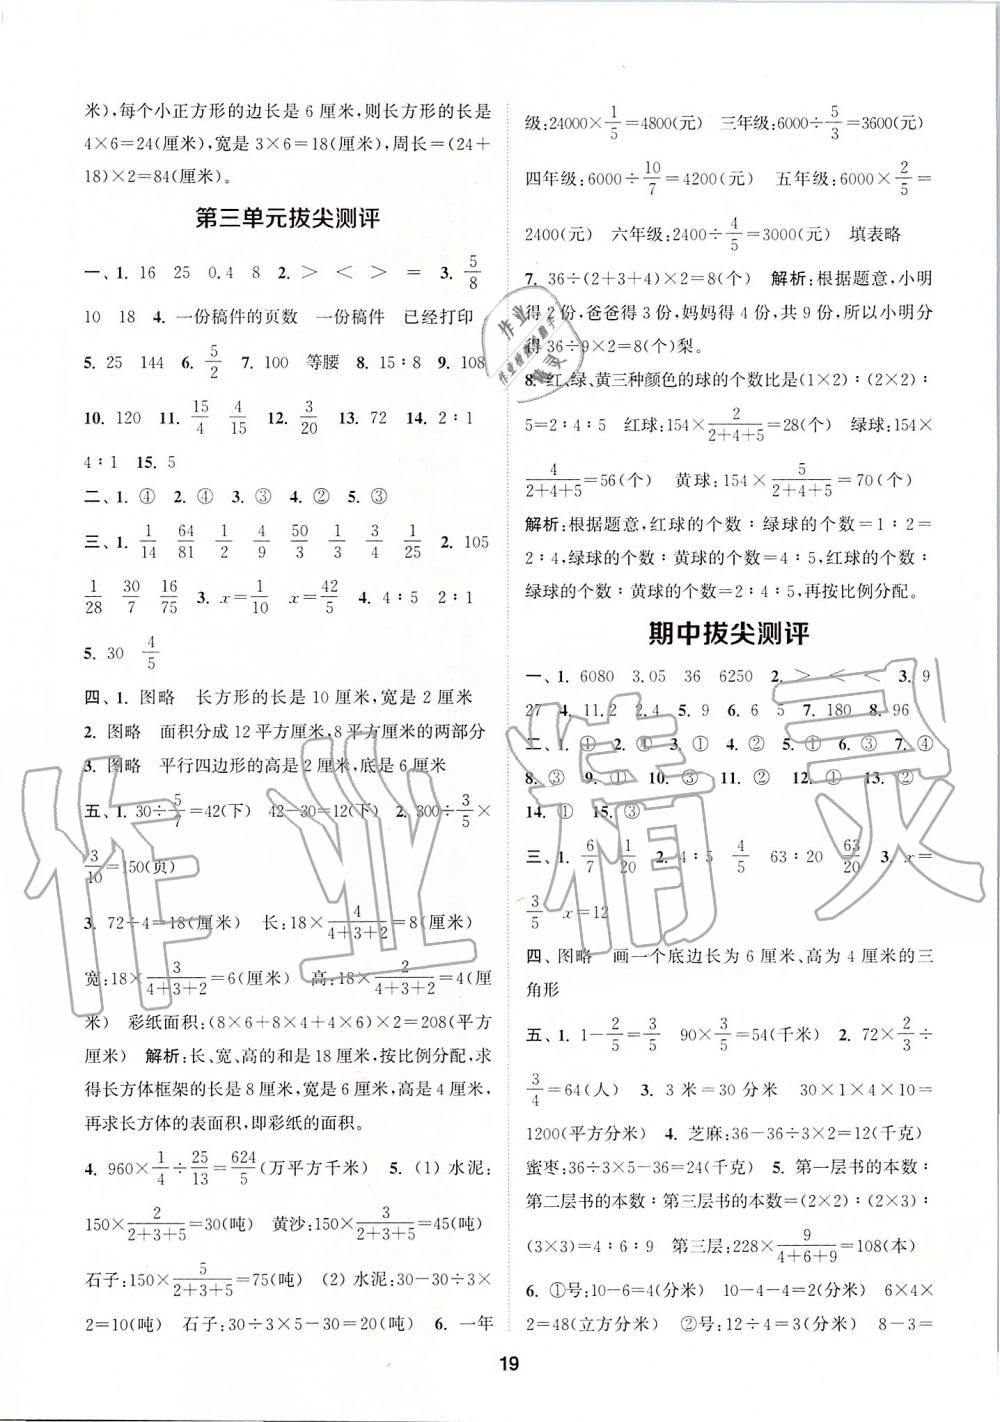 米),每个小正方形的边长是 6 厘米,则长方形的长是
4×6=24(厘米),宽是 3×6=18(厘米),周长=(24+
18)×2=84(厘米)。
第三单元拔尖测评
一、1. 16 25 0.4 8 2. > < > = 3. 5/8
10 18 4. 一份稿件的页数 一份稿件 已经打印
5. 25 144 6. 5/2 7. 100 等腰 8. 15∶8 9. 108
10. 120 11. 15/4 4/15 12. 3/20 13. 72 14. 2∶1
4∶1 15. 5
二、1. ④ 2. ④ 3. ③ 4. ② 5. ③
三、1. 1/14 64/81 1/2 4/9 50/3 1/3 3/4 1/25 2. 105
1/28 30/7 16/75 3. x=1/10 x=42/5 4. 4∶5 2∶1
5. 30 4/5
四、1. 图略 长方形的长是 10 厘米,宽是 2 厘米
2. 图略 面积分成 12 平方厘米,8 平方厘米的两部分
3. 图略 平行四边形的高是 2 厘米,底是 6 厘米
五、1. 30÷5/7=42(下) 42-30=12(下) 2. 300÷3/5×
3/10=150(页)
3. 72÷4=18(厘米) 长:18×4/(4+3+2)=8(厘米)
宽:18×3/(4+3+2)=6(厘米) 高:18×2/(4+3+2)=4(厘
米) 彩纸面积:(8×6+8×4+4×6)×2=208(平方
厘米) 解析:长、宽、高的和是 18 厘米,按比例分配,求
得长方体框架的长是 8 厘米,宽是 6 厘米,高是 4 厘米,
再求长方体的表面积,即彩纸的面积。
4. 960×1/4÷25/13=624/5(万平方千米) 5. (1) 水泥:
150×2/(2+3+5)=30(吨) 黄沙:150×3/(2+3+5)=45(吨)
石子:150×5/(2+3+5)=75(吨) (2) 水泥:30-30÷3×
2=10(吨) 石子:30÷3×5-30=20(吨) 6. 一年
级:24000×1/5=4800(元) 三年级:6000÷5/3=3600(元)
四年级:6000÷10/7=4200(元) 五年级:6000×2/5=
2400(元) 六年级:2400÷4/5=3000(元) 填表略
7. 36÷(2+3+4)×2=8(个) 解析:根据题意,小明
得 2 份,爸爸得 3 份,妈妈得 4 份,共 9 份,所以小明分
得 36÷9×2=8(个)梨。
8. 红、绿、黄三种颜色的球的个数比是(1×2)∶(2×2)∶
5=2∶4∶5 红球:154×2/(2+4+5)=28(个) 绿球:154×
4/(2+4+5)=56(个) 黄球:154×5/(2+4+5)=70(个)
解析:根据题意,红球的个数∶绿球的个数=1∶2=
2∶4,绿球的个数∶黄球的个数=4∶5,红球的个数∶
绿球的个数∶黄球的个数=2∶4∶5,再按比例分配。
期中拔尖测评
一、1. 6080 3.05 36 6250 2. > < < 3. 9
27 4. 11.2 2.4 5. 9 6. 6 5 7. 180 8. 96
二、1. ① 2. ① 3. ① 4. ② 5. ③ 6. ③ 7. ④
8. ③ 9. ① 10. ③ 11. ② 12. ① 13. ②
14. ① 15. ③
三、1. 6/7 1/20 2. 4∶5 4/5 63∶20 63/20 3. x=
3/5 x=12
四、图略 画一个底边长为 6 厘米、高为 4 厘米的三
角形
五、1. 1-2/5=3/5 90×3/5=54(千米) 2. 72×2/3÷
3/4=64(人) 3. 3 米=30 分米 30×1×4×10=
1200(平方分米) 4. 芝麻:36-36÷3×2=12(千克)
蜜枣:36÷3×5-36=24(千克) 5. 第一层书的本数∶
第二层书的本数∶第三层书的本数=(2×2)∶(2×3)∶
(3×3)=4∶6∶9 第三层:228×9/(4+6+9)=108(本)
6. ①号:10-6=4(分米) 10-4-4=2(分米) 6×4×
2=48(立方分米) ②号:12÷4=3(分米) 8-3=
19
作业精灵